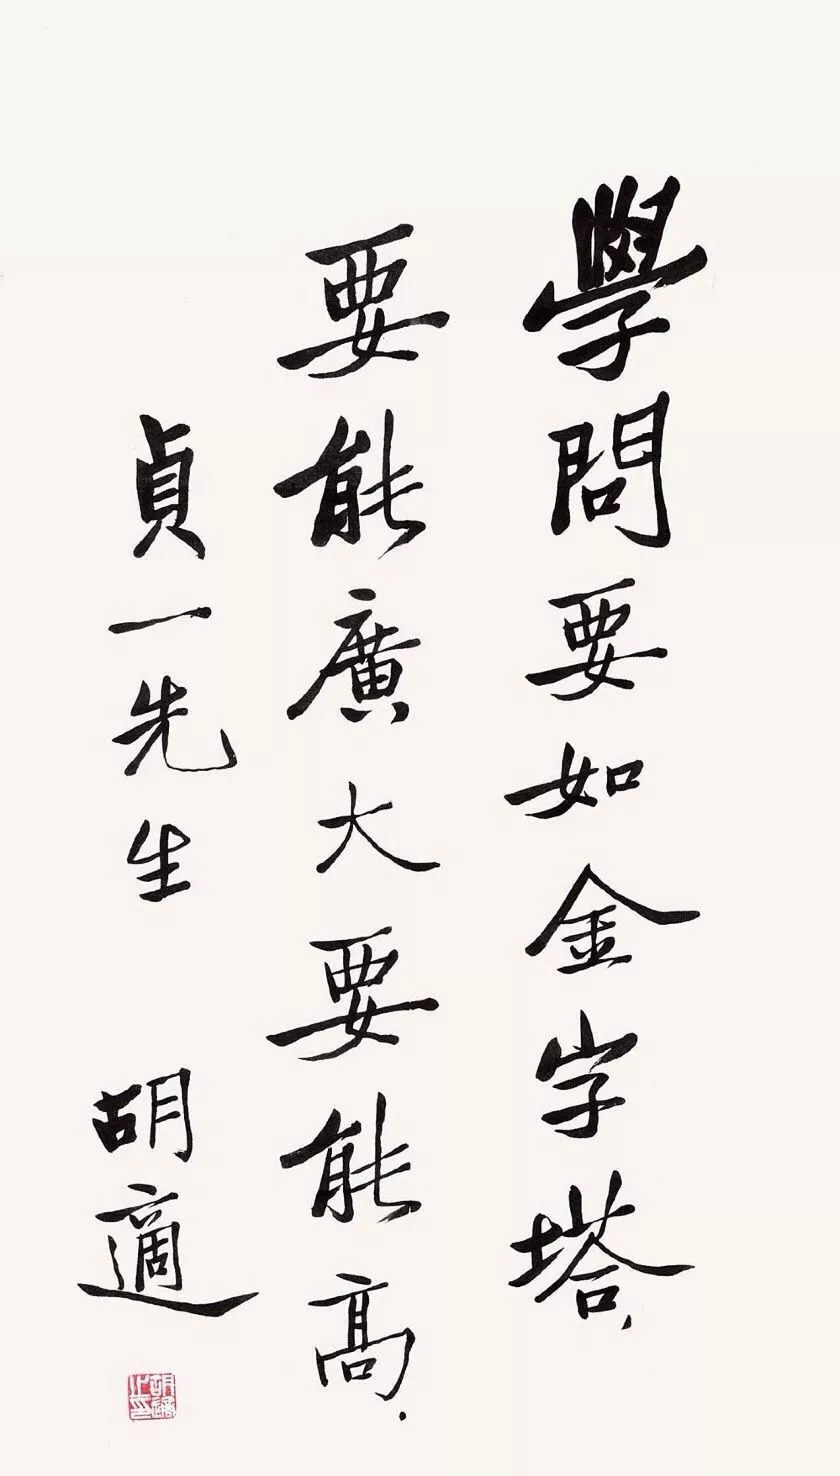 學問要如金字塔，
要能廣大要能高．
貞一先生　胡適
胡適之印